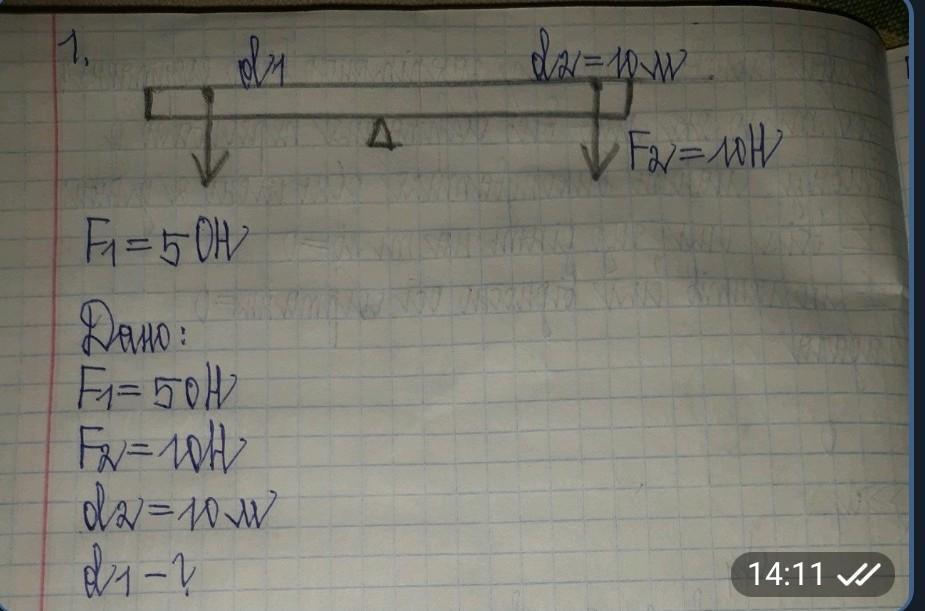 1.
d1
d2=10м
F2=10Н
F1=50Н
Дано:
F1=50Н
F2=10Н
d2=10м
d1-?
14:11